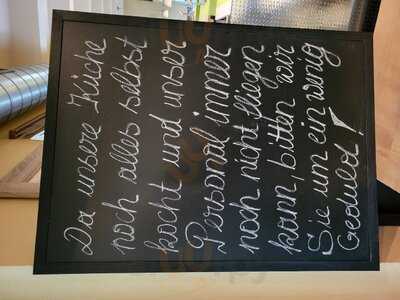 Da unsere Küche
noch alles selbst
kocht und unser
Personal immer
noch nicht fliegen
kann, bitten wir
Sie um ein wenig
Geduld!